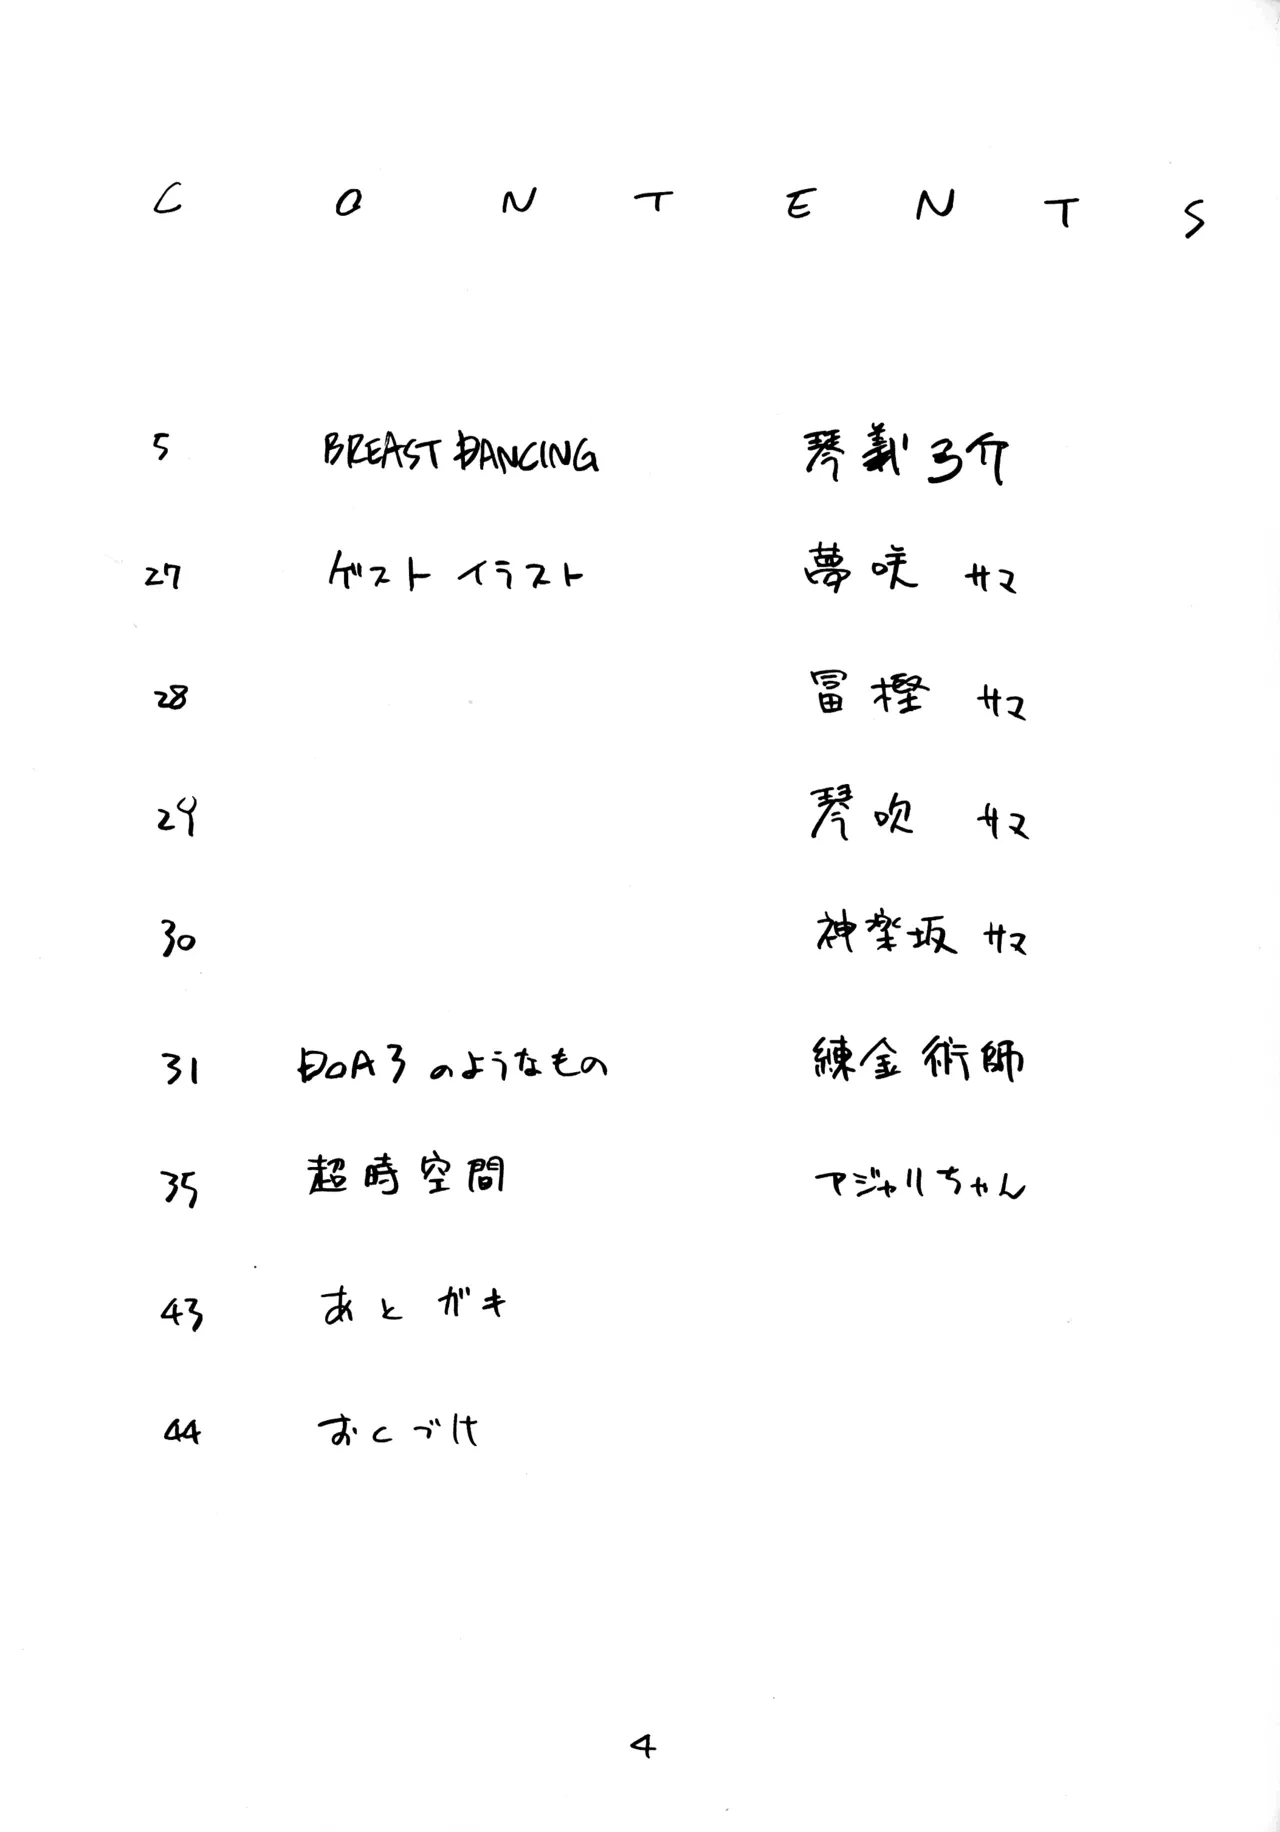 CONTENTS
5 BREAST DANCING 琴義弓介
27 ゲストイラスト 夢咲サマ
28 冨樫サマ
29 琴吹サマ
30 神楽坂サマ
31 DOA3のようなもの 錬金術師
35 超時空間 アジャリちゃん
43 あとガキ
44 おくづけ
4